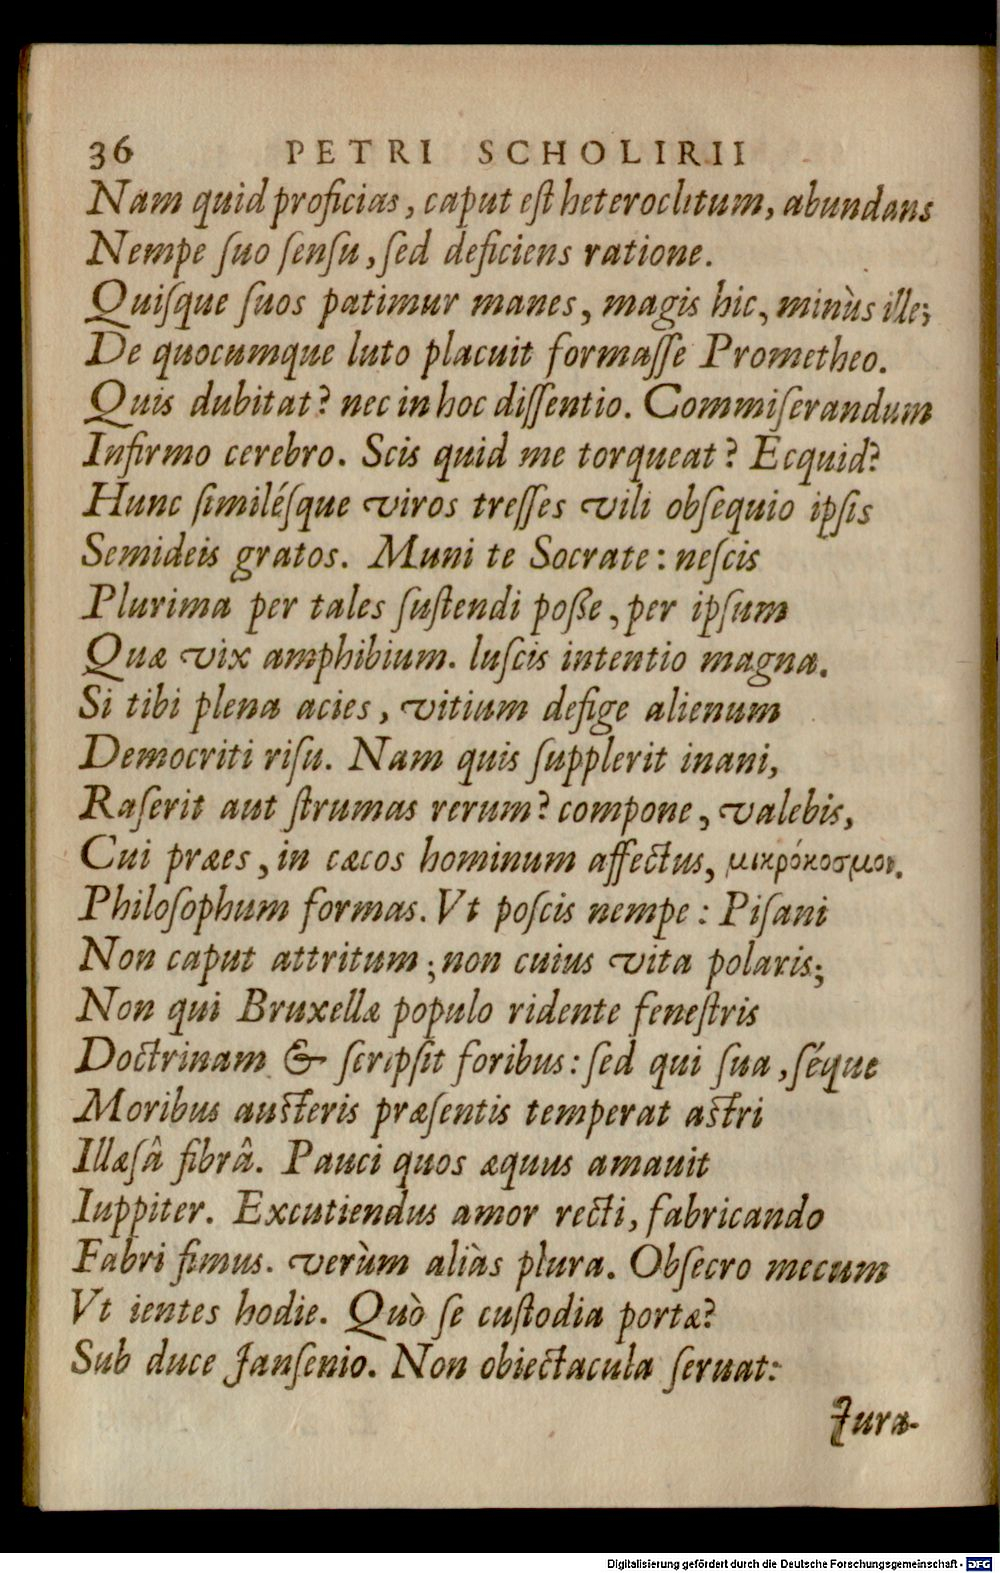 36 PETRI SCHOLIRII
Nam quid proficias, caput eſt heteroclitum, abundans
Nempe ſuo ſenſu, ſed deficiens ratione.
Quiſque ſuos patimur manes, magis hic, minùs ille;
De quocumque luto placuit formaſſe Prometheo.
Quis dubitat? nec in hoc diſſentio. Commiſerandum
Infirmo cerebro. Scis quid me torqueat? Ecquid?
Hunc ſimiléſque viros treſſes vili obſequio ipſis
Semideis gratos. Muni te Socrate: neſcis
Plurima per tales ſuſtendi poſſe, per ipſum
Quæ vix amphibium. luſcis intentio magna.
Si tibi plena acies, vitium defige alienum
Democriti riſu. Nam quis ſupplerit inani,
Raſerit aut ſtrumas rerum? compone, valebis,
Cui præes, in cæcos hominum affectus, μικρόκοσμον.
Philoſophum formas. Vt poſcis nempe: Piſani
Non caput attritum; non cuius vita polaris;
Non qui Bruxellæ populo ridente feneſtris
Doctrinam & ſcripſit foribus: ſed qui ſua, ſéque
Moribus auſteris præſentis temperat aſtri
Illæſâ fibrâ. Pauci quos æquus amauit
Iuppiter. Excutiendus amor recti, fabricando
Fabri fimus. verùm aliàs plura. Obſecro mecum
Vt ientes hodie. Quò ſe cuſtodia portæ?
Sub duce Janſenio. Non obiectacula ſeruat:
Juræ-
Digitalisierung gefördert durch die Deutsche Forschungsgemeinschaft - DFG